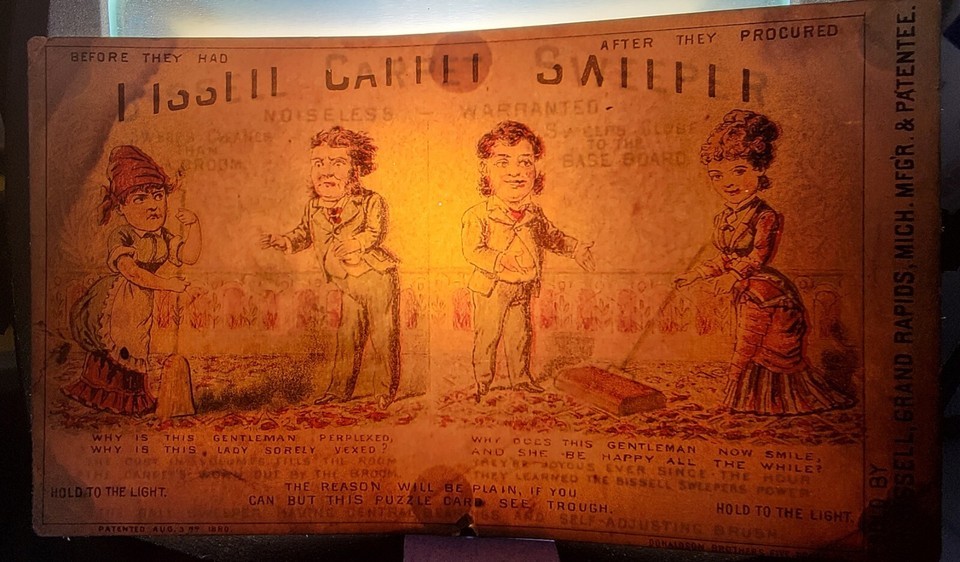 BEFORE THEY HAD
AFTER THEY PROCURED
BISSELL CARPET SWEEPER
NOISELESS — WARRANTED
THAN
A BROOM
SWEEPS CLOSE
TO THE
BASE BOARD
WHY IS THIS GENTLEMAN PERPLEXED,
WHY IS THIS LADY SORELY VEXED?
THE DUST IN VOLUMES FILLS THE ROOM
THE CARPET'S WORN OUT BY THE BROOM.
WHY DOES THIS GENTLEMAN NOW SMILE,
AND SHE BE HAPPY ALL THE WHILE?
THEY'RE JOYOUS EVER SINCE THE HOUR
THEY LEARNED THE BISSELL SWEEPERS POWER
HOLD TO THE LIGHT.
THE REASON WILL BE PLAIN, IF YOU
CAN BUT THIS PUZZLE CARD SEE THROUGH.
HOLD TO THE LIGHT.
HAVING CENTRAL BEARINGS AND SELF-ADJUSTING BRUSH
PATENTED AUG. 3RD 1880.
DONALDSON BROTHERS
BY
BISSELL, GRAND RAPIDS, MICH. MFG'R. & PATENTEE.